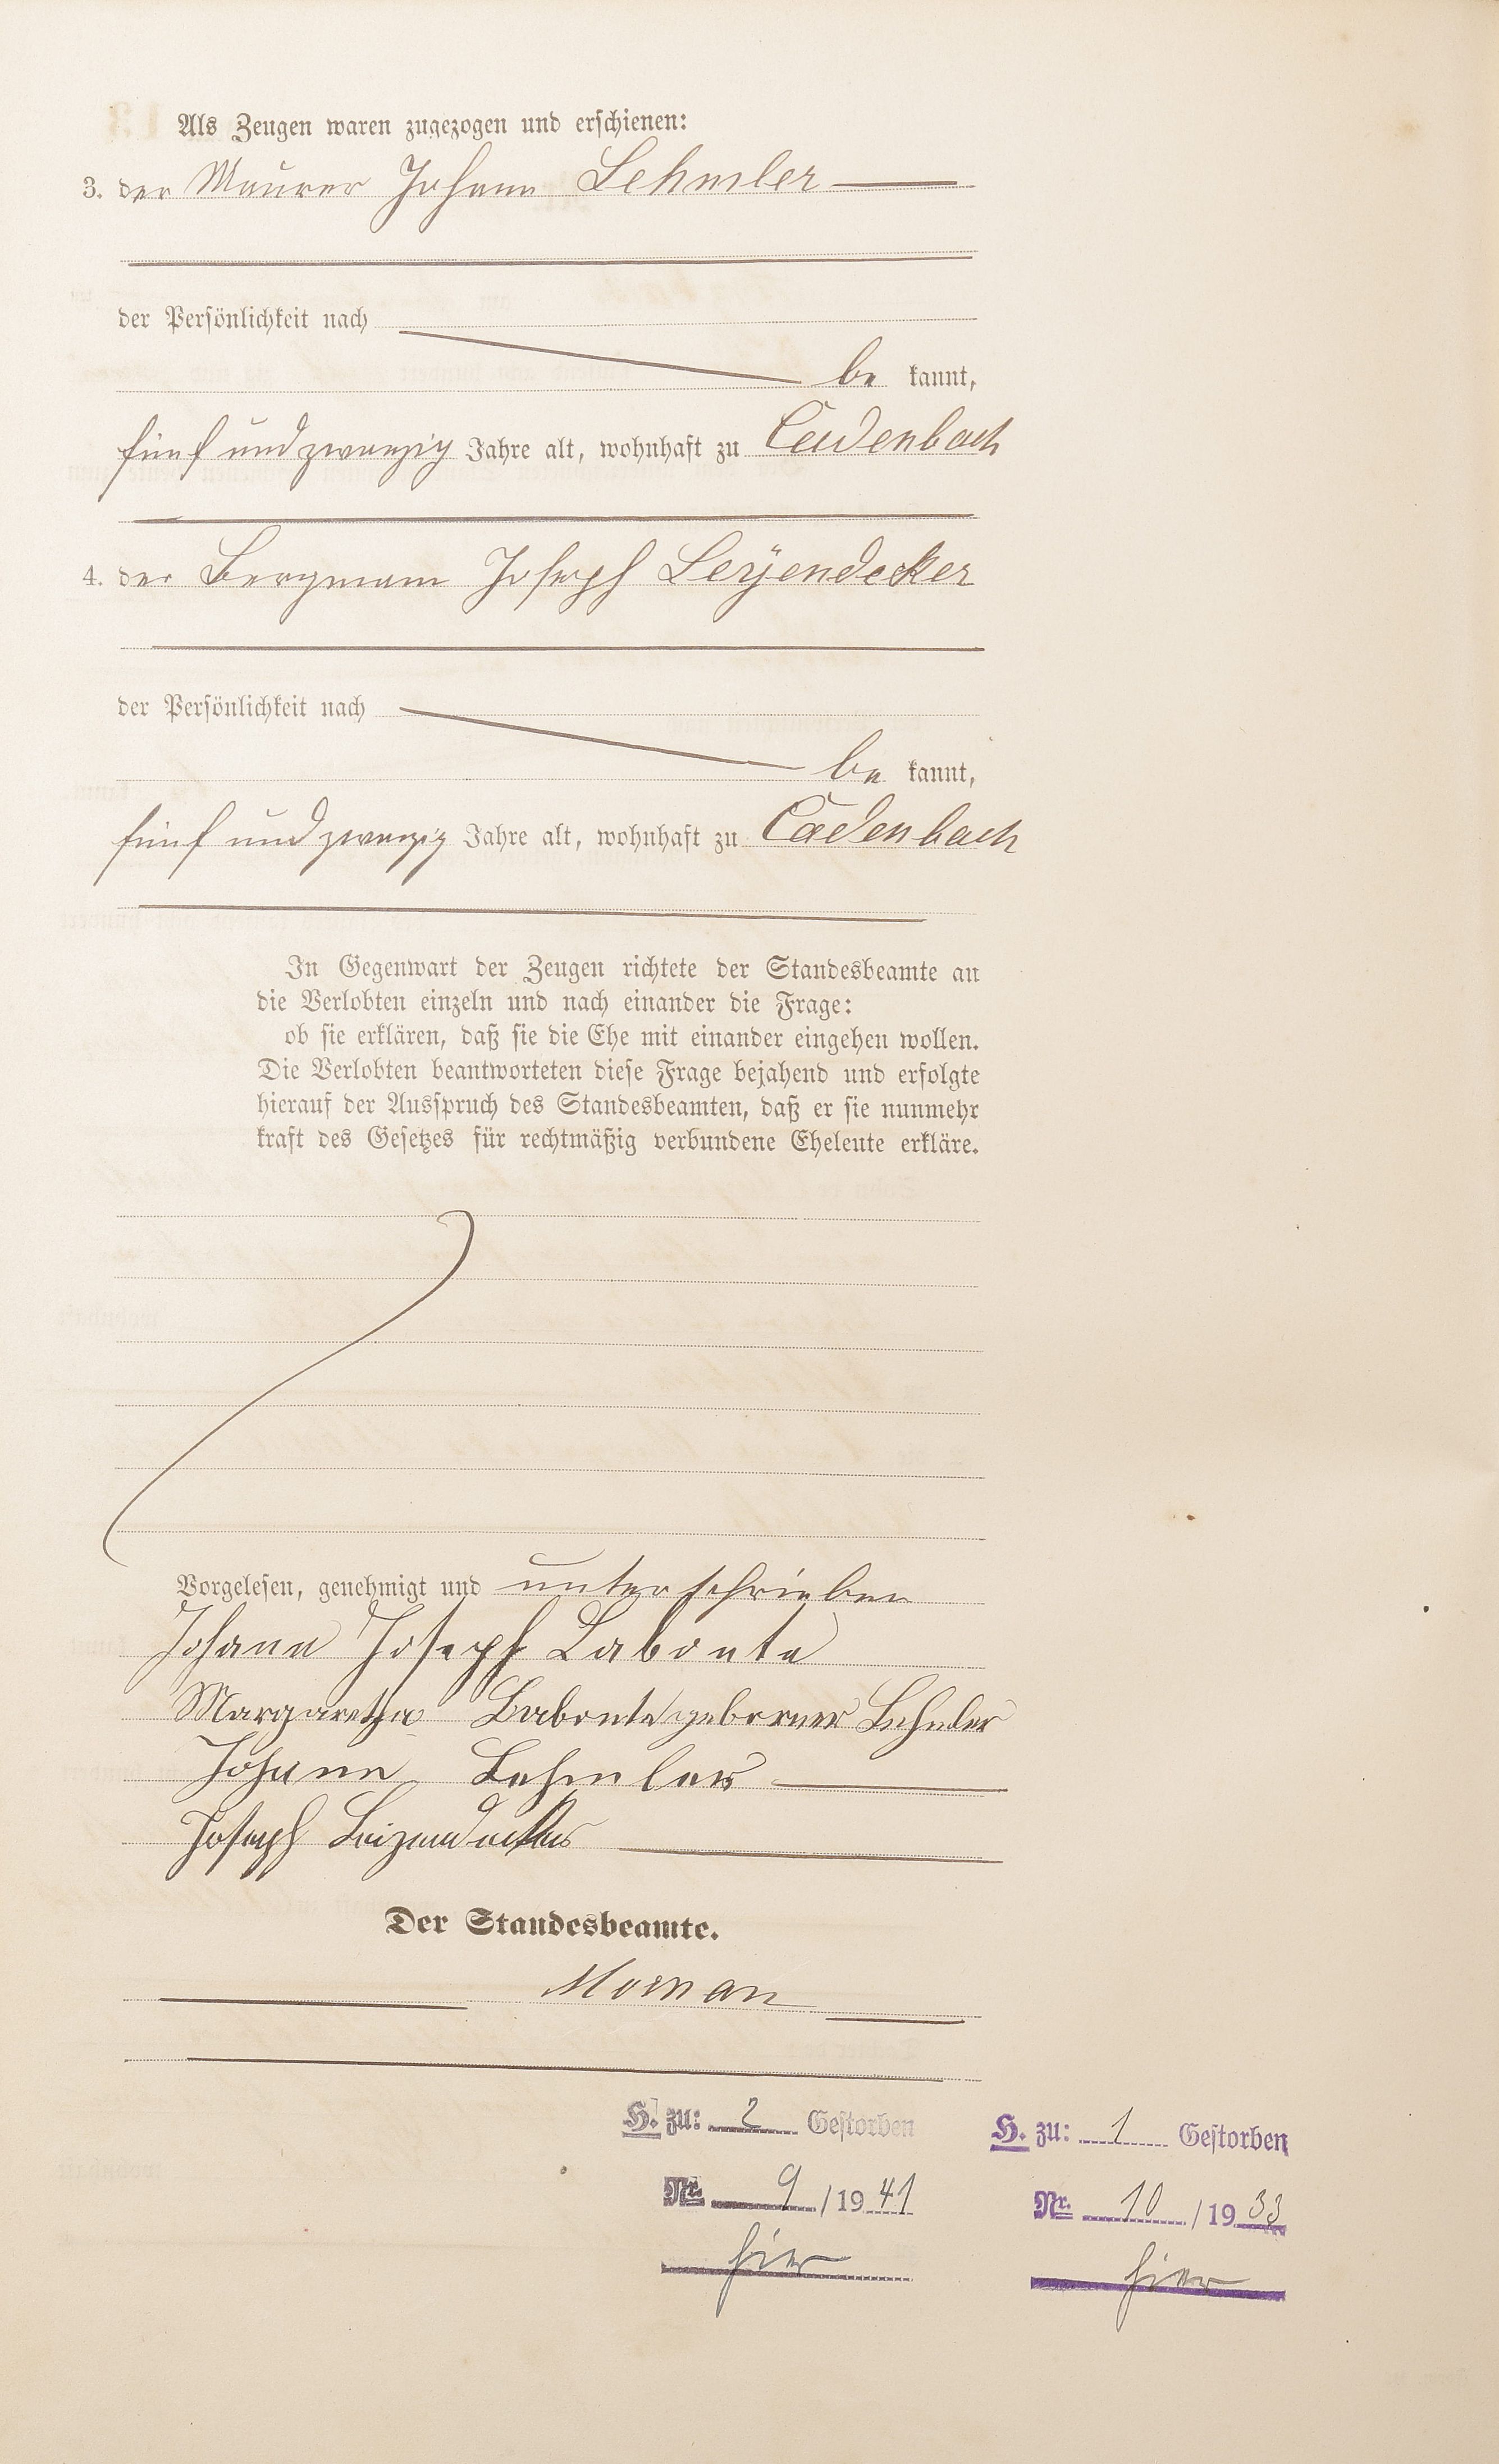 Als Zeugen waren zugezogen und erschienen:
3. der Maurer Johann Lehmler
der Persönlichkeit nach
be kannt,
fünf und zwanzig Jahre alt, wohnhaft zu Cadenbach
4. der Bergmann Joseph Leÿendecker
der Persönlichkeit nach
be kannt,
fünf und zwanzig Jahre alt, wohnhaft zu Cadenbach
In Gegenwart der Zeugen richtete der Standesbeamte an
die Verlobten einzeln und nach einander die Frage:
ob sie erklären, daß sie die Ehe mit einander eingehen wollen.
Die Verlobten beantworteten diese Frage bejahend und erfolgte
hierauf der Ausspruch des Standesbeamten, daß er sie nunmehr
kraft des Gesetzes für rechtmäßig verbundene Eheleute erkläre.
Vorgelesen, genehmigt und unterschrieben
Johann Joseph Labonte
Margaretha Labonte geborner Lehmler
Johann Lehmler
Joseph Leizendecker
Der Standesbeamte.
H. zu: 2 Gestorben
Nr. 9 / 19 41
hier
H. zu: 1 Gestorben
Nr. 10 / 19 33
hier